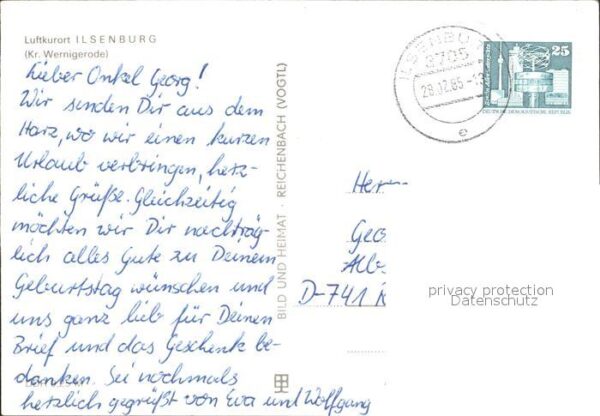 Luftkurort ILSENBURG
(Kr. Wernigerode)
Lieber Onkel Georg!
Wir senden Dir aus dem
Harz, wo wir einen kurzen
Urlaub verbringen, herz-
liche Grüße. Gleichzeitig
möchten wir Dir nachträg-
lich alles Gute zu Deinem
Geburtstag wünschen und
uns ganz lieb für Deinen
Brief und das Geschenk be-
danken. Sei nochmals
herzlich gegrüßt von Eva und Wolfgang
BILD UND HEIMAT · REICHENBACH (VOGTL)
ILSENBU
3705
28.12.85
e
25
DEUTSCHE DEMOKRATISCHE REPUBLIK
Herr
Geo
Alb
D-741
privacy protection
Datenschutz